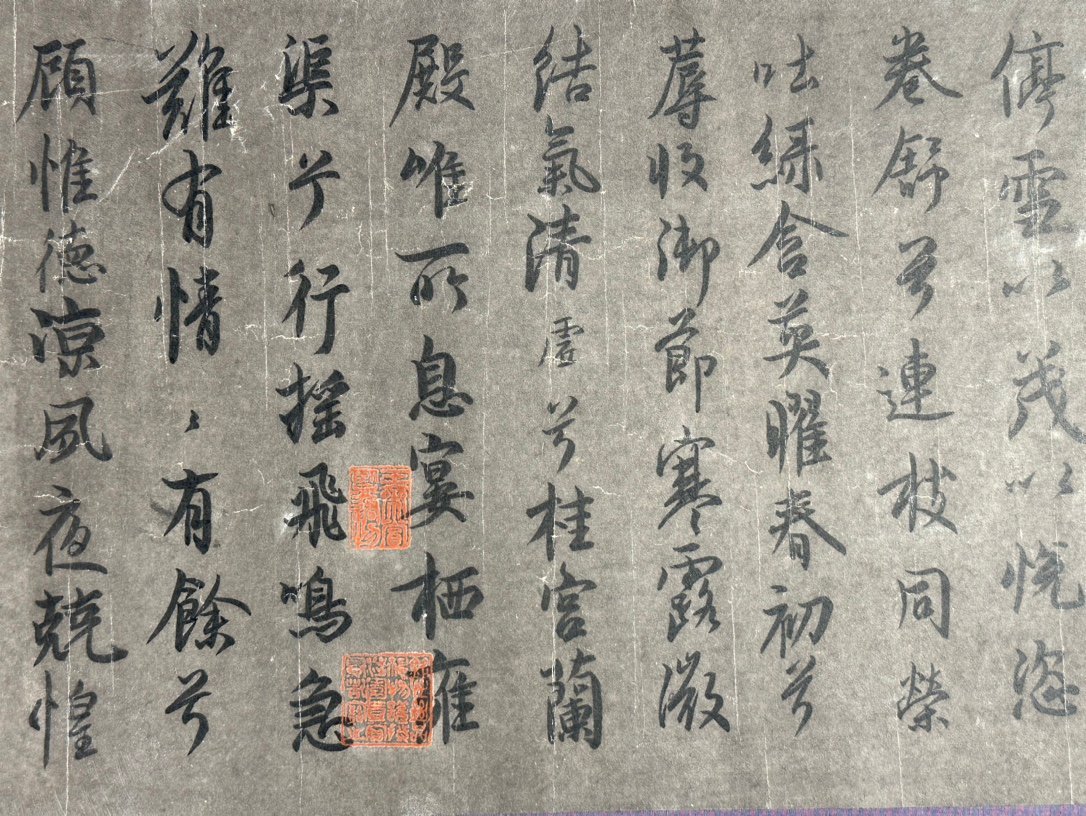 停雪以茂以悦恣
卷舒兮連枝同榮
吐緑含英曜春初兮
蓐收御節寒露微
結氣清虚兮桂宮蘭
殿唯所息宴栖雍
渠兮行摇飛鳴急
難有情〻有餘兮
顧惟德涼夙夜兢惶